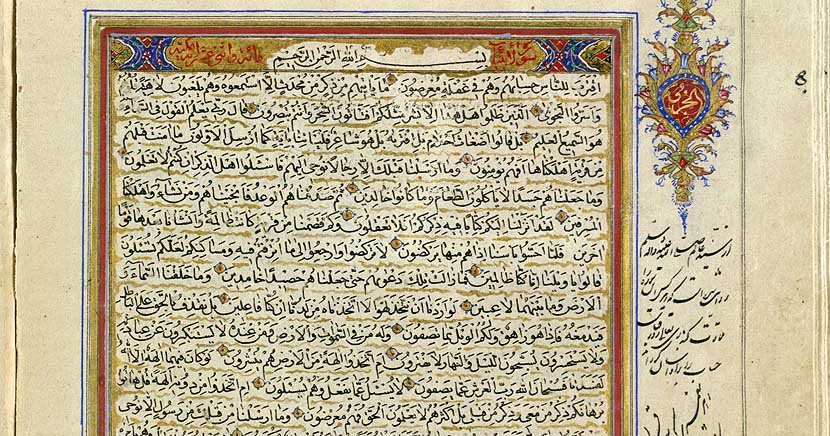 سورة الأنبياء بسم الله الرحمن الرحيم مائة واثنتي عشرة آية مكية
اقترب للناس حسابهم وهم في غفلة معرضون ما يأتيهم من ذكر من ربهم محدث إلا استمعوه وهم يلعبون لاهية قلوبهم
وأسروا النجوى الذين ظلموا هل هذا إلا بشر مثلكم أفتأتون السحر وأنتم تبصرون قال ربي يعلم القول في السماء والأرض
وهو السميع العليم بل قالوا أضغاث أحلام بل افتراه بل هو شاعر فليأتنا بآية كما أرسل الأولون ما آمنت قبلهم
من قرية أهلكناها أفهم يؤمنون وما أرسلنا قبلك إلا رجالا نوحي إليهم فاسئلوا أهل الذكر إن كنتم لا تعلمون
وما جعلناهم جسدا لا يأكلون الطعام وما كانوا خالدين ثم صدقناهم الوعد فأنجيناهم ومن نشاء وأهلكنا
المسرفين لقد أنزلنا إليكم كتابا فيه ذكركم أفلا تعقلون وكم قصمنا من قرية كانت ظالمة وأنشأنا بعدها قوما
آخرين فلما أحسوا بأسنا إذا هم منها يركضون لا تركضوا وارجعوا إلى ما أترفتم فيه ومساكنكم لعلكم تسئلون
قالوا يا ويلنا إنا كنا ظالمين فما زالت تلك دعواهم حتى جعلناهم حصيدا خامدين وما خلقنا السماء و
الأرض وما بينهما لاعبين لو أردنا أن نتخذ لهوا لاتخذناه من لدنا إن كنا فاعلين بل نقذف بالحق على الباطل
فيدمغه فإذا هو زاهق ولكم الويل مما تصفون وله من في السموات والأرض ومن عنده لا يستكبرون عن عبادته
ولا يستحسرون يسبحون الليل والنهار لا يفترون أم اتخذوا آلهة من الأرض هم ينشرون لو كان فيهما آلهة إلا الله
لفسدتا فسبحان الله رب العرش عما يصفون لا يسئل عما يفعل وهم يسئلون أم اتخذوا من دونه آلهة قل هاتوا
برهانكم هذا ذكر من معي وذكر من قبلي بل أكثرهم لا يعلمون الحق فهم معرضون وما أرسلنا من قبلك من رسول إلا نوحي